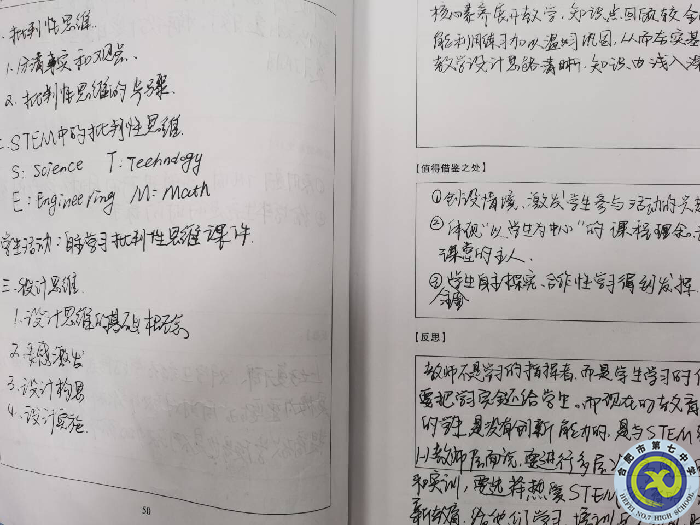 批判性思维
1.分清事实和观点.
2.批判性思维的步骤.
STEM中的批判性思维.
S: Science T: Technology
E: Engineering M: Math
学生活动:自学习批判性思维课件.
三.设计思维
1.设计思维的基础概念
2.灵感激发
3.设计构思
4.设计实施.
50
核心素养展开教学,知识点回放较全
教学设计思路清晰.知识由浅入深
【值得借鉴之处】
①创设情境.激发学生参与活动的兴趣
②体现“以学生为中心”的课程理念.
课堂的主人.
③学生自主探究、合作性学习得到发挥.
【反思】
教师不是学习的指挥者,而是学生学习的
要把学习实践还给学生.而现在的教育
的学生是没有创新能力的.是与STEM
(1)教师层面说,要进行多层
和实训,要选择热爱STEM
合肥市第七中学
HEFEI NO.7 HIGH SCHOOL